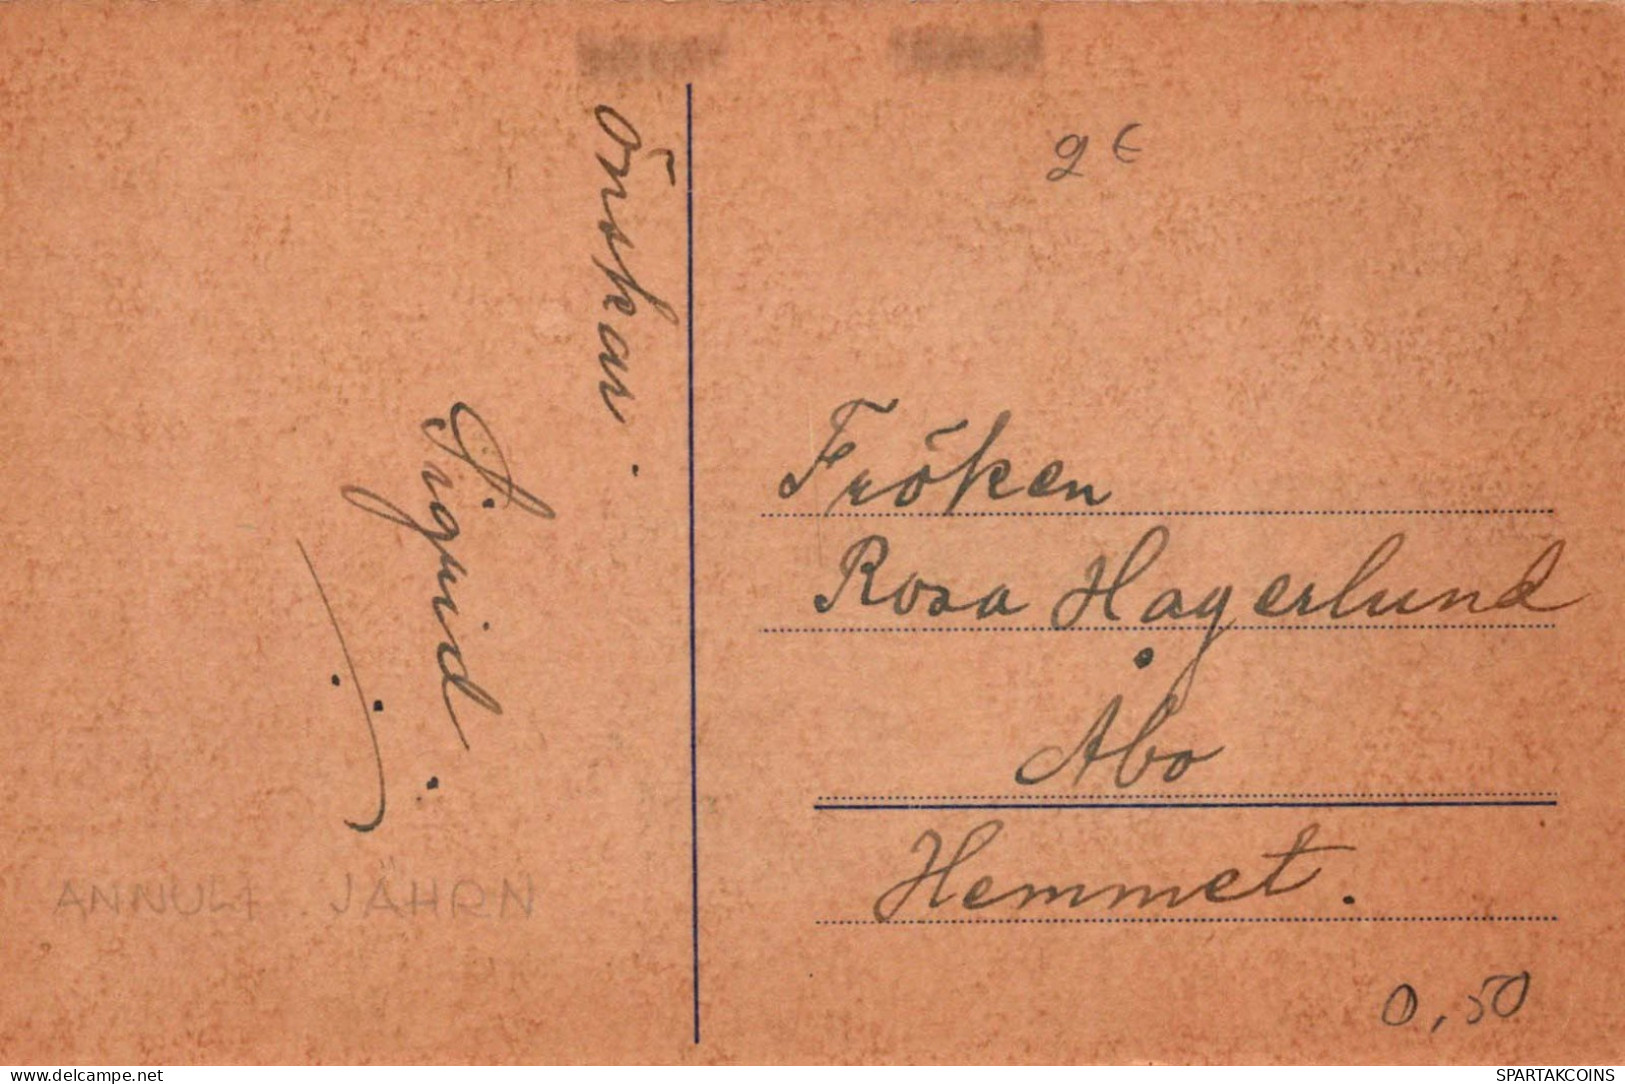 2 €
Önskar
Sigrid.
Fröken
Rosa Hagerlund
Åbo
Hemmet.
0,50
www.delcampe.net
SPARTAKCOINS